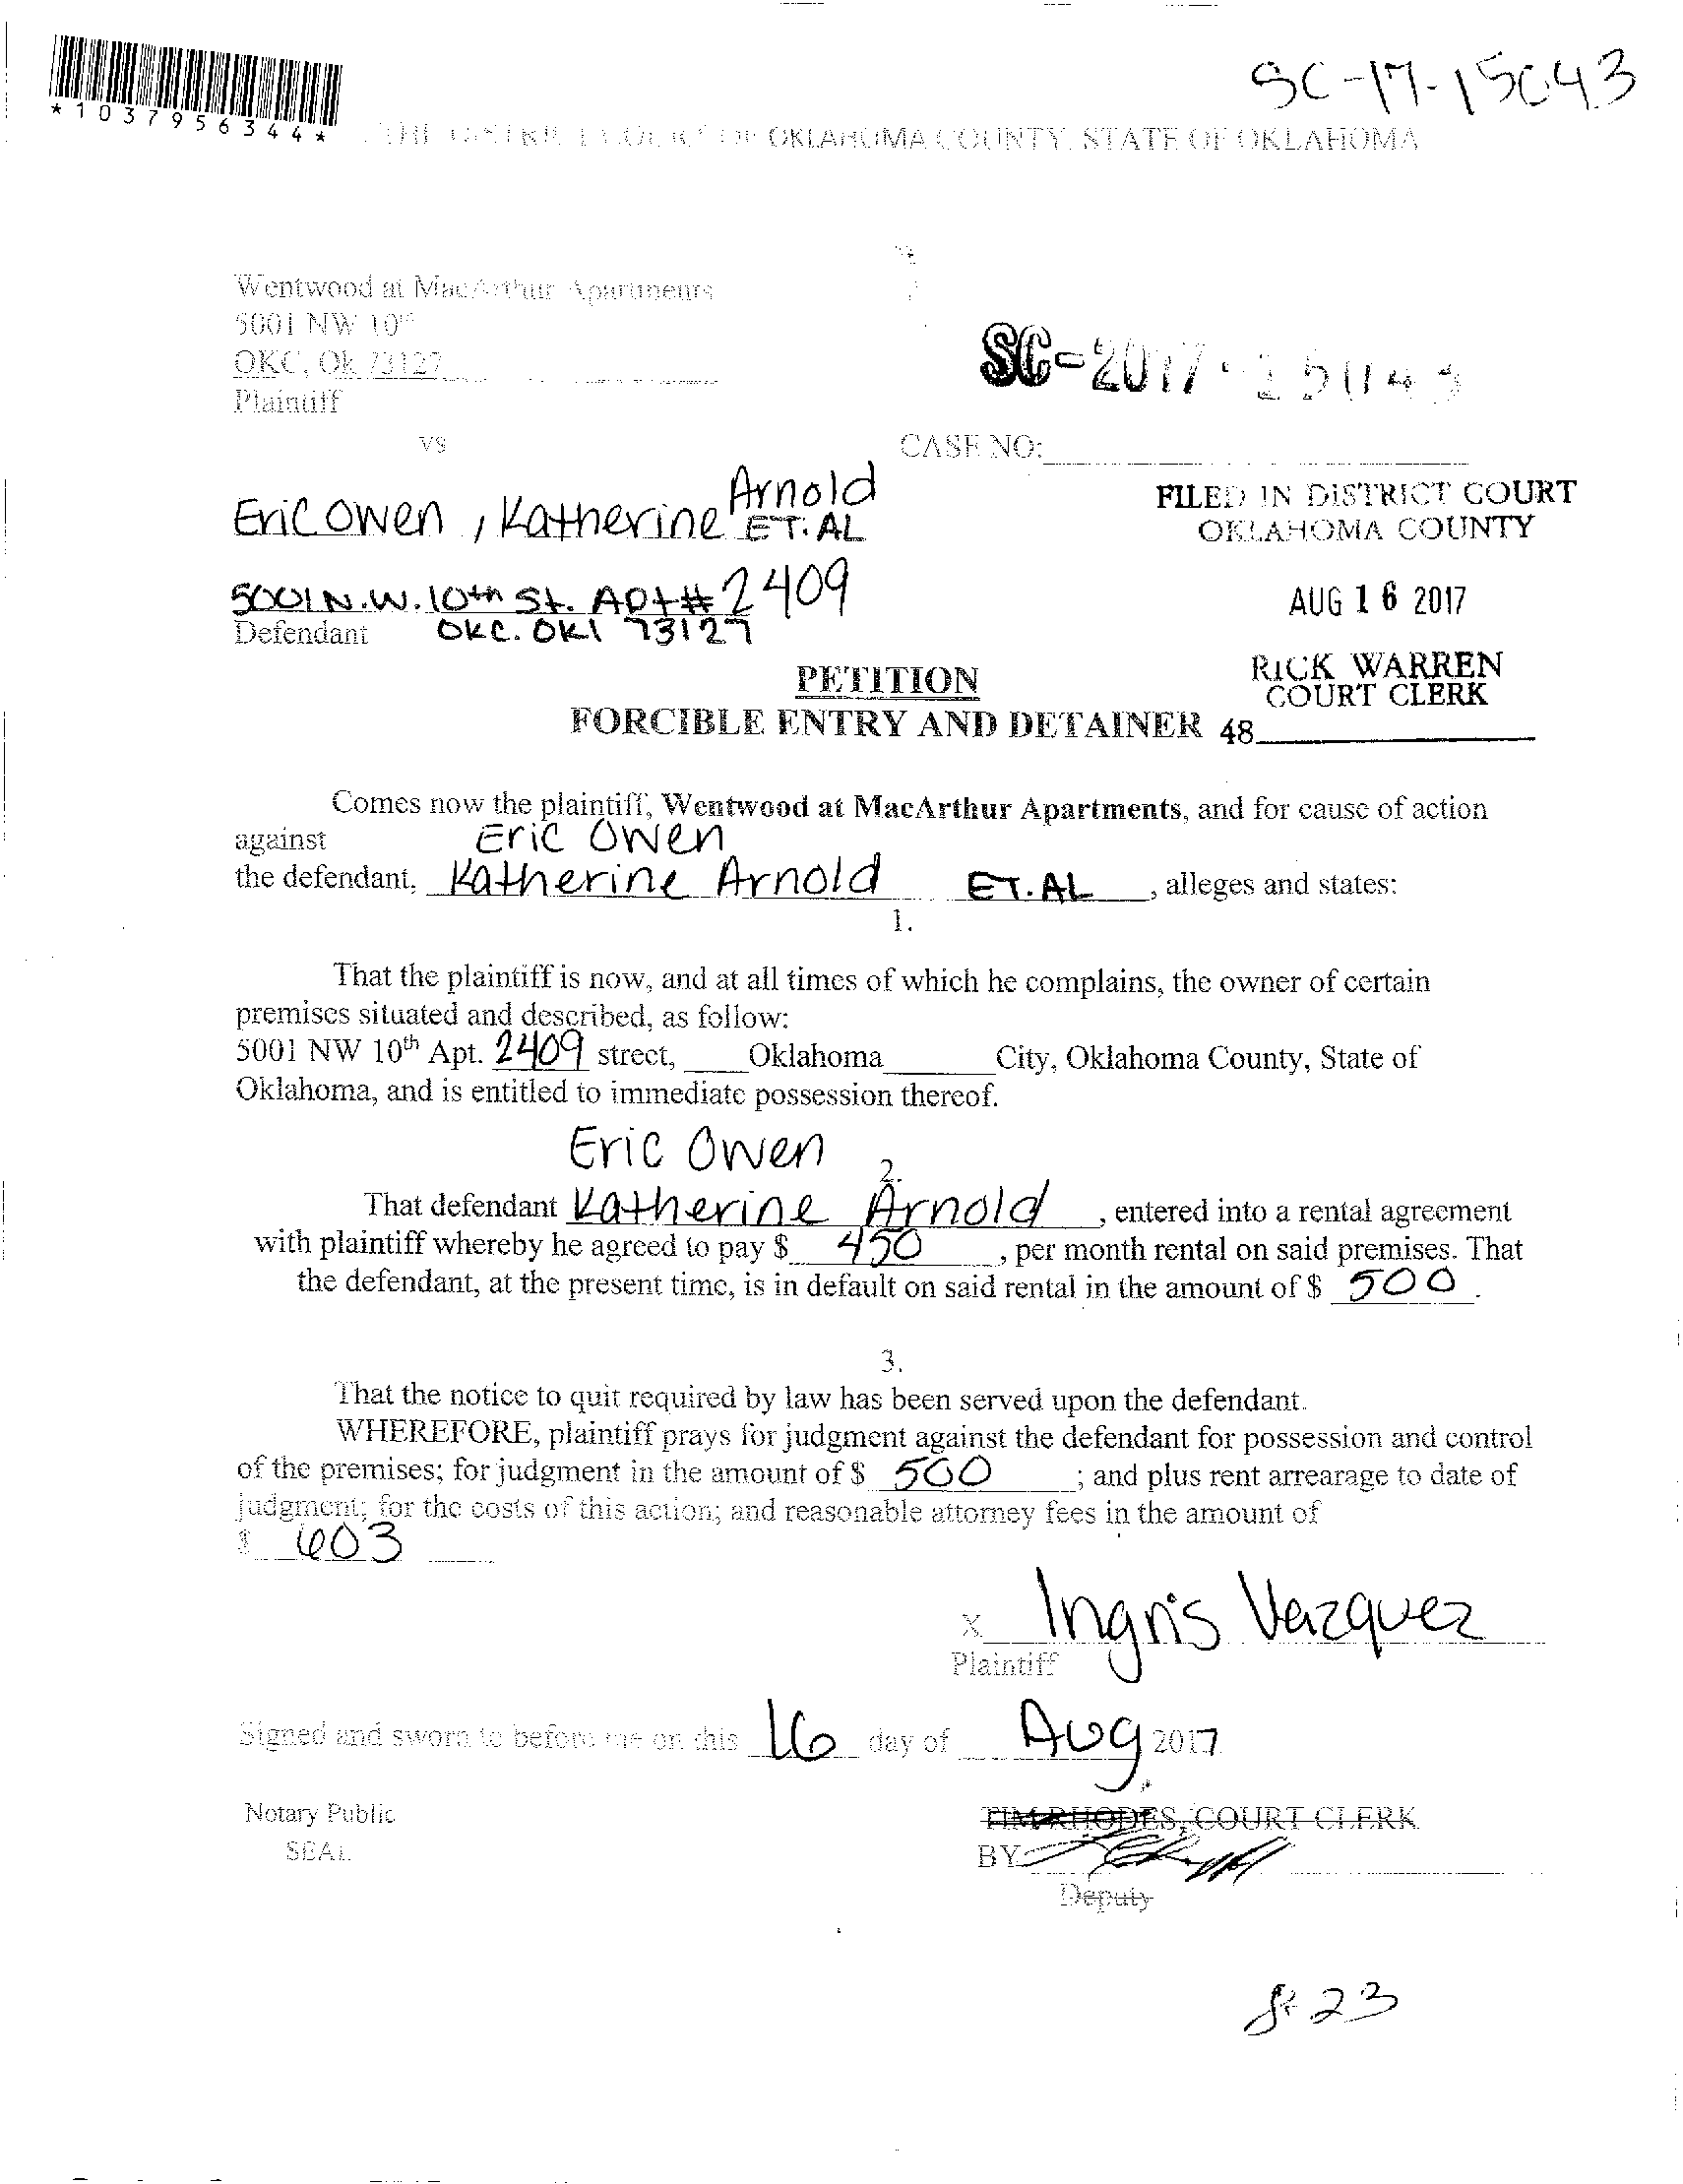 SC-17-15043
*1037956344*
THE DISTRICT COURT OF OKLAHOMA COUNTY, STATE OF OKLAHOMA
Wentwood at MacArthur Apartments
5001 NW 10th
OKC, Ok 73127
Plaintiff
SC-2017-15043
vs
CASE NO:
Eric Owen, Katherine Arnold
ET. AL
FILED IN DISTRICT COURT
OKLAHOMA COUNTY
5001 N.W. 10th St. Apt# 2409
AUG 16 2017
Defendant OKC. OKl 73127
RICK WARREN
COURT CLERK
PETITION
FORCIBLE ENTRY AND DETAINER
48
Comes now the plaintiff, Wentwood at MacArthur Apartments, and for cause of action
against Eric Owen
the defendant, Katherine Arnold ET. AL, alleges and states:
1.
That the plaintiff is now, and at all times of which he complains, the owner of certain
premises situated and described, as follow:
5001 NW 10th Apt. 2409 street, Oklahoma City, Oklahoma County, State of
Oklahoma, and is entitled to immediate possession thereof.
Eric Owen
2.
That defendant Katherine Arnold, entered into a rental agreement
with plaintiff whereby he agreed to pay $ 450, per month rental on said premises. That
the defendant, at the present time, is in default on said rental in the amount of $ 500.
3.
That the notice to quit required by law has been served upon the defendant.
WHEREFORE, plaintiff prays for judgment against the defendant for possession and control
of the premises; for judgment in the amount of $ 500; and plus rent arrearage to date of
judgment; for the costs of this action; and reasonable attorney fees in the amount of
$ 603
X Ingris Vazquez
Plaintiff
Signed and sworn to before me on this 16 day of Aug 2017
Notary Public
TIM RHODES, COURT CLERK
SEAL
BY
Deputy
8-23